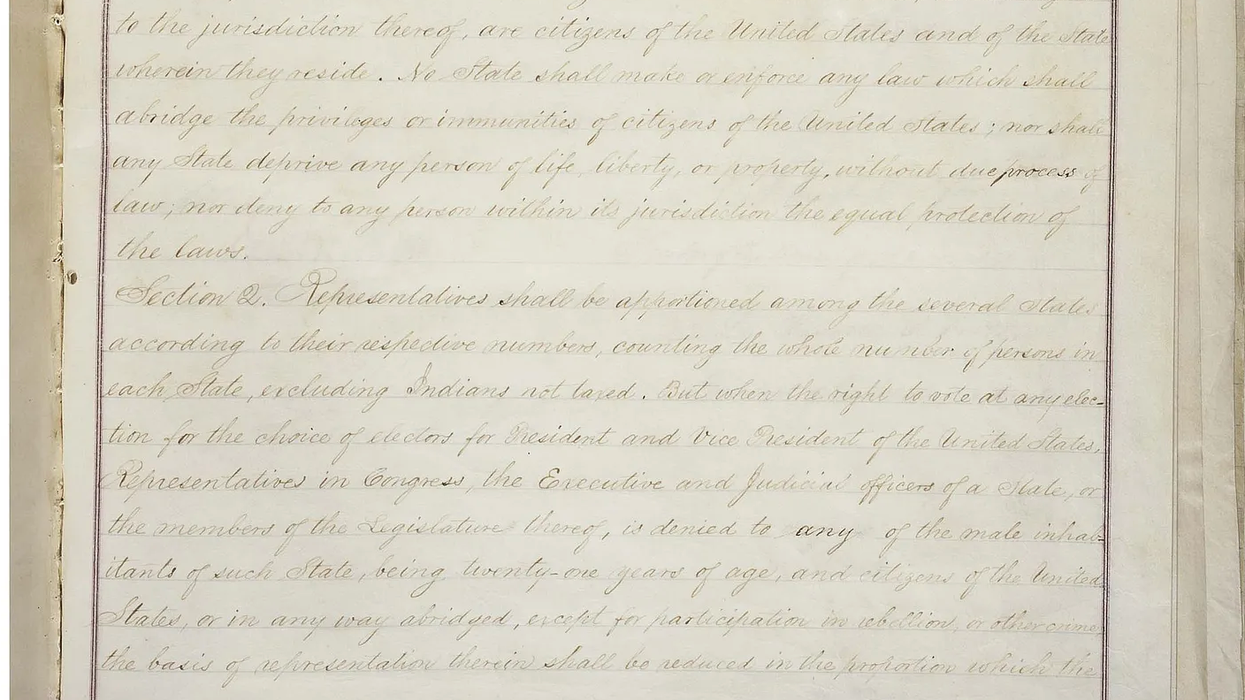 to the jurisdiction thereof, are citizens of the United States and of the State
wherein they reside. No State shall make or enforce any law which shall
abridge the privileges or immunities of citizens of the United States; nor shall
any State deprive any person of life, liberty, or property, without due process of
law; nor deny to any person within its jurisdiction the equal protection of
the laws.
Section 2. Representatives shall be apportioned among the several States
according to their respective numbers, counting the whole number of persons in
each State, excluding Indians not taxed. But when the right to vote at any elec-
tion for the choice of electors for President and Vice President of the United States,
Representatives in Congress, the Executive and Judicial officers of a State, or
the members of the Legislature thereof, is denied to any of the male inhab-
itants of such State, being twenty-one years of age, and citizens of the United
States, or in any way abridged, except for participation in rebellion, or other crime,
the basis of representation therein shall be reduced in the proportion which the